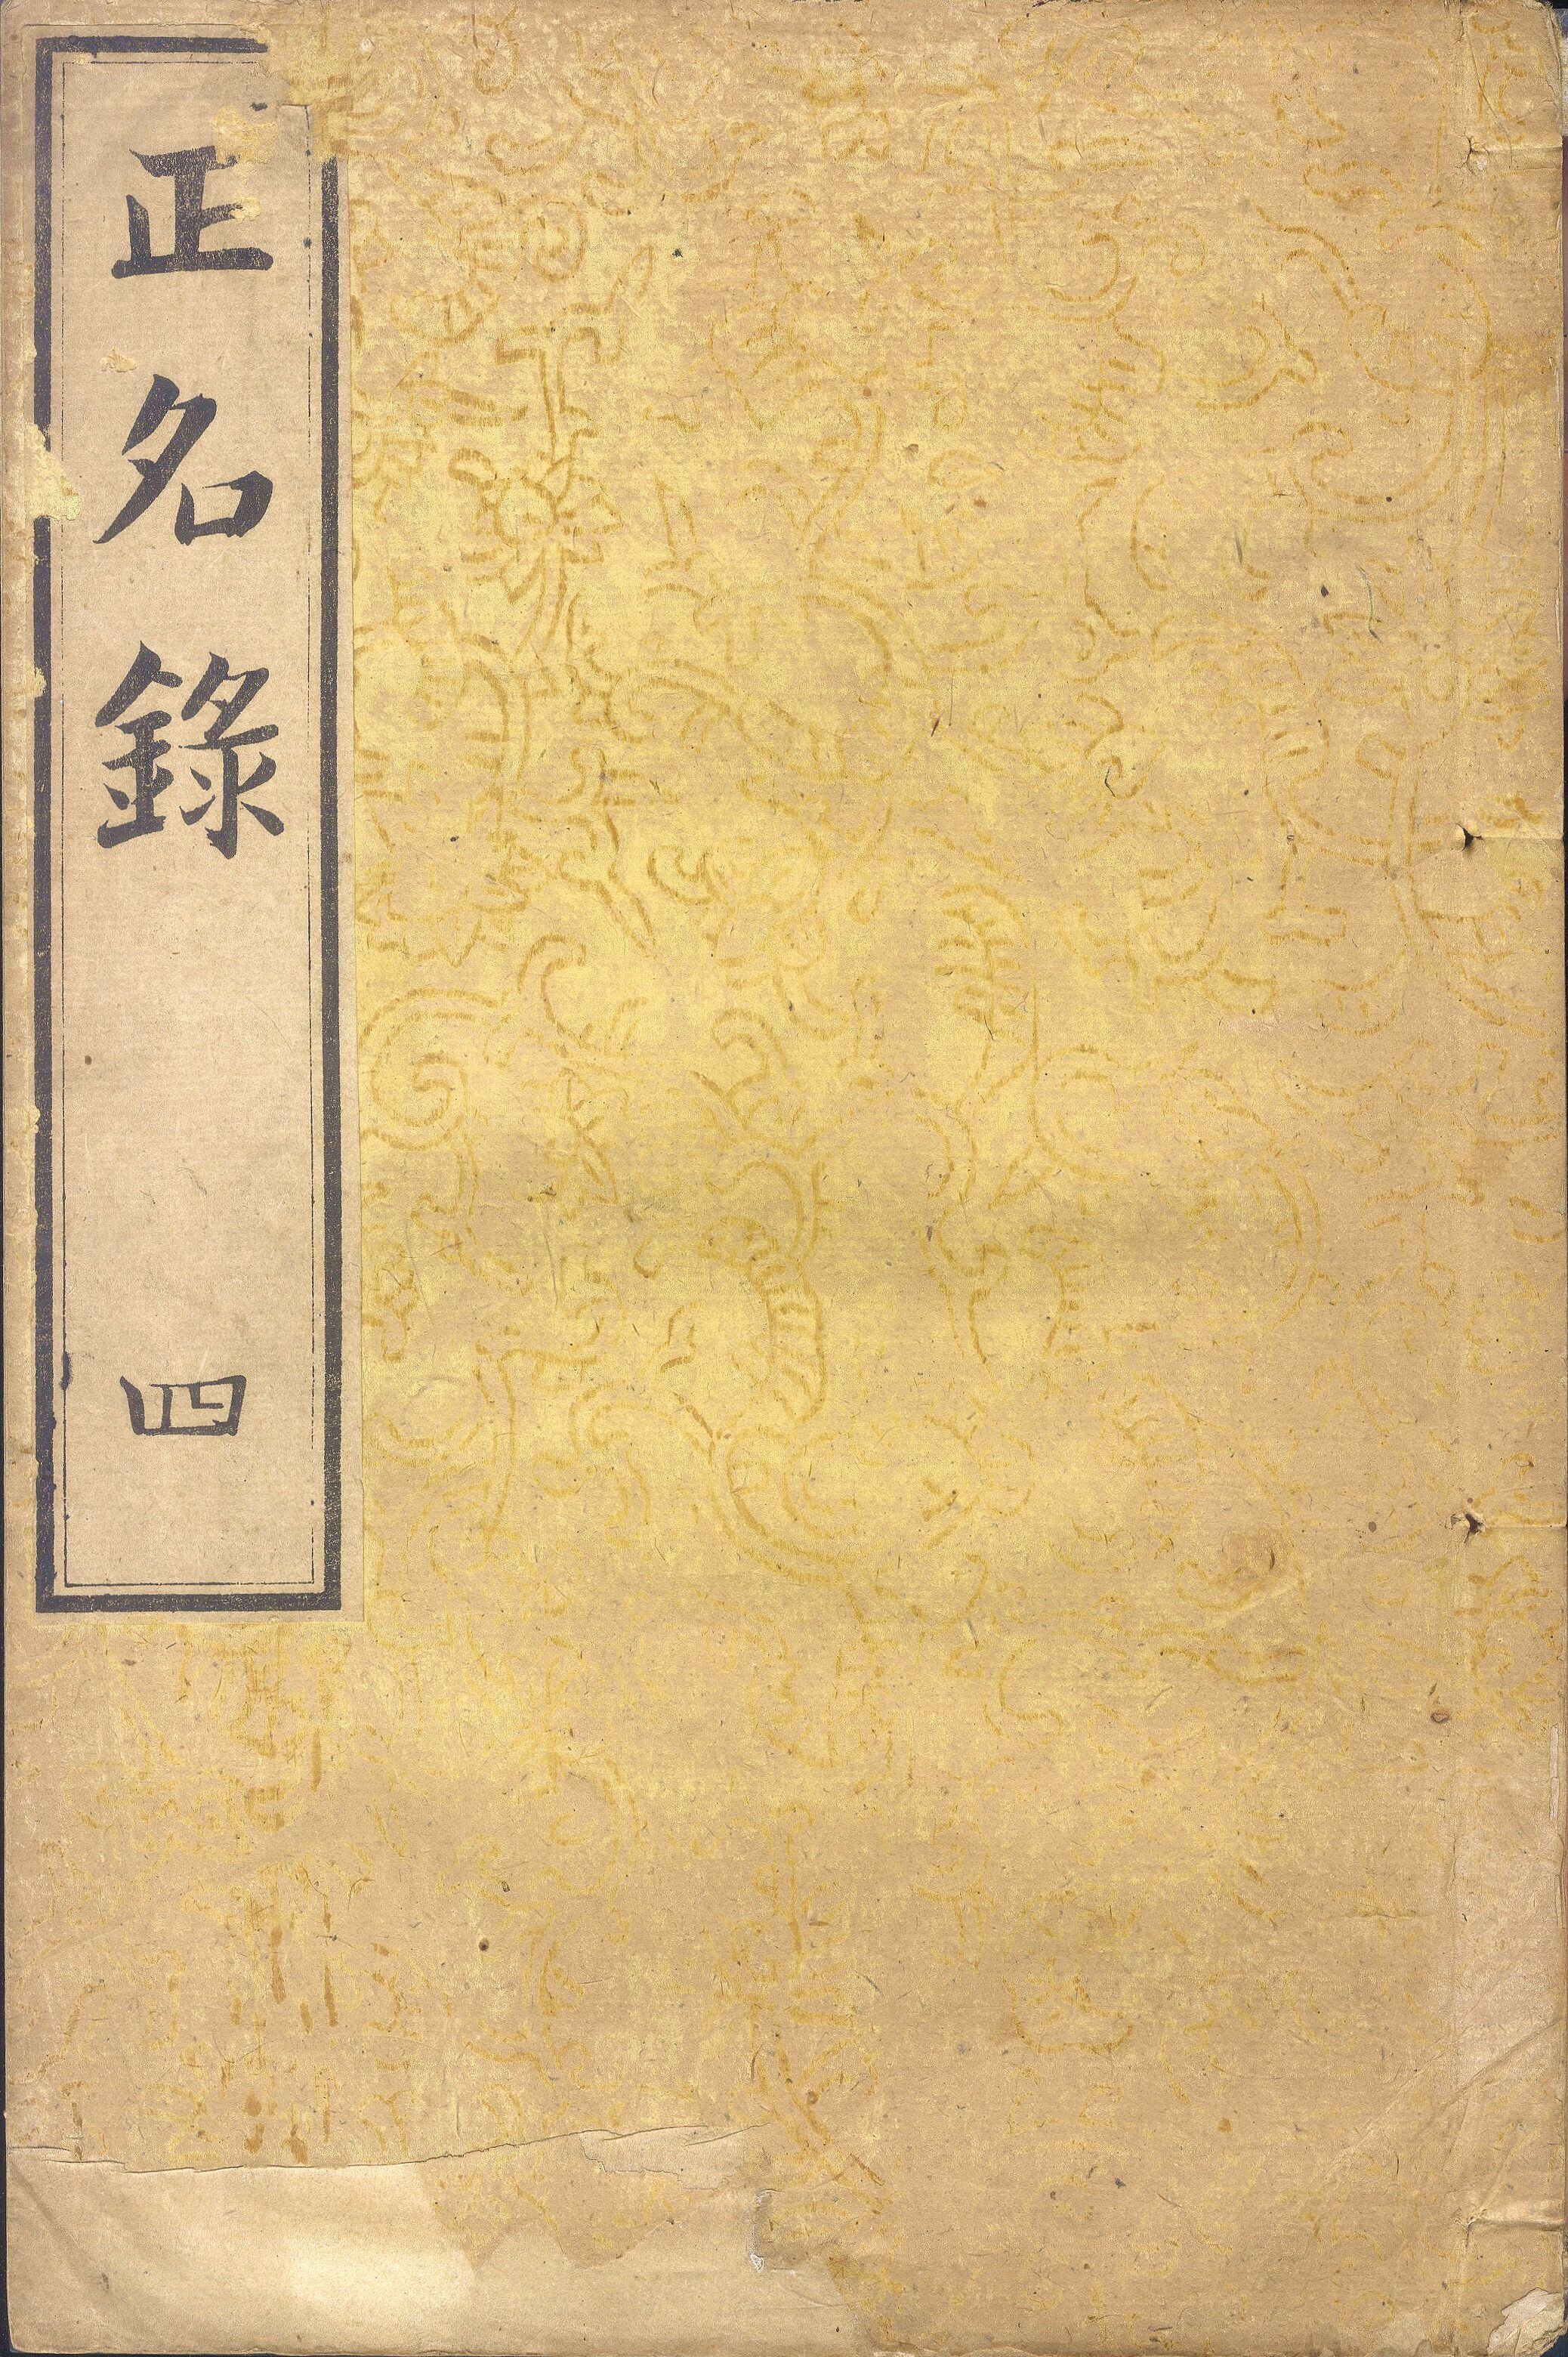 正名錄
四